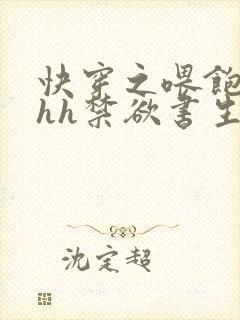 快穿之喂飽
hh禁欲書生
沈定超